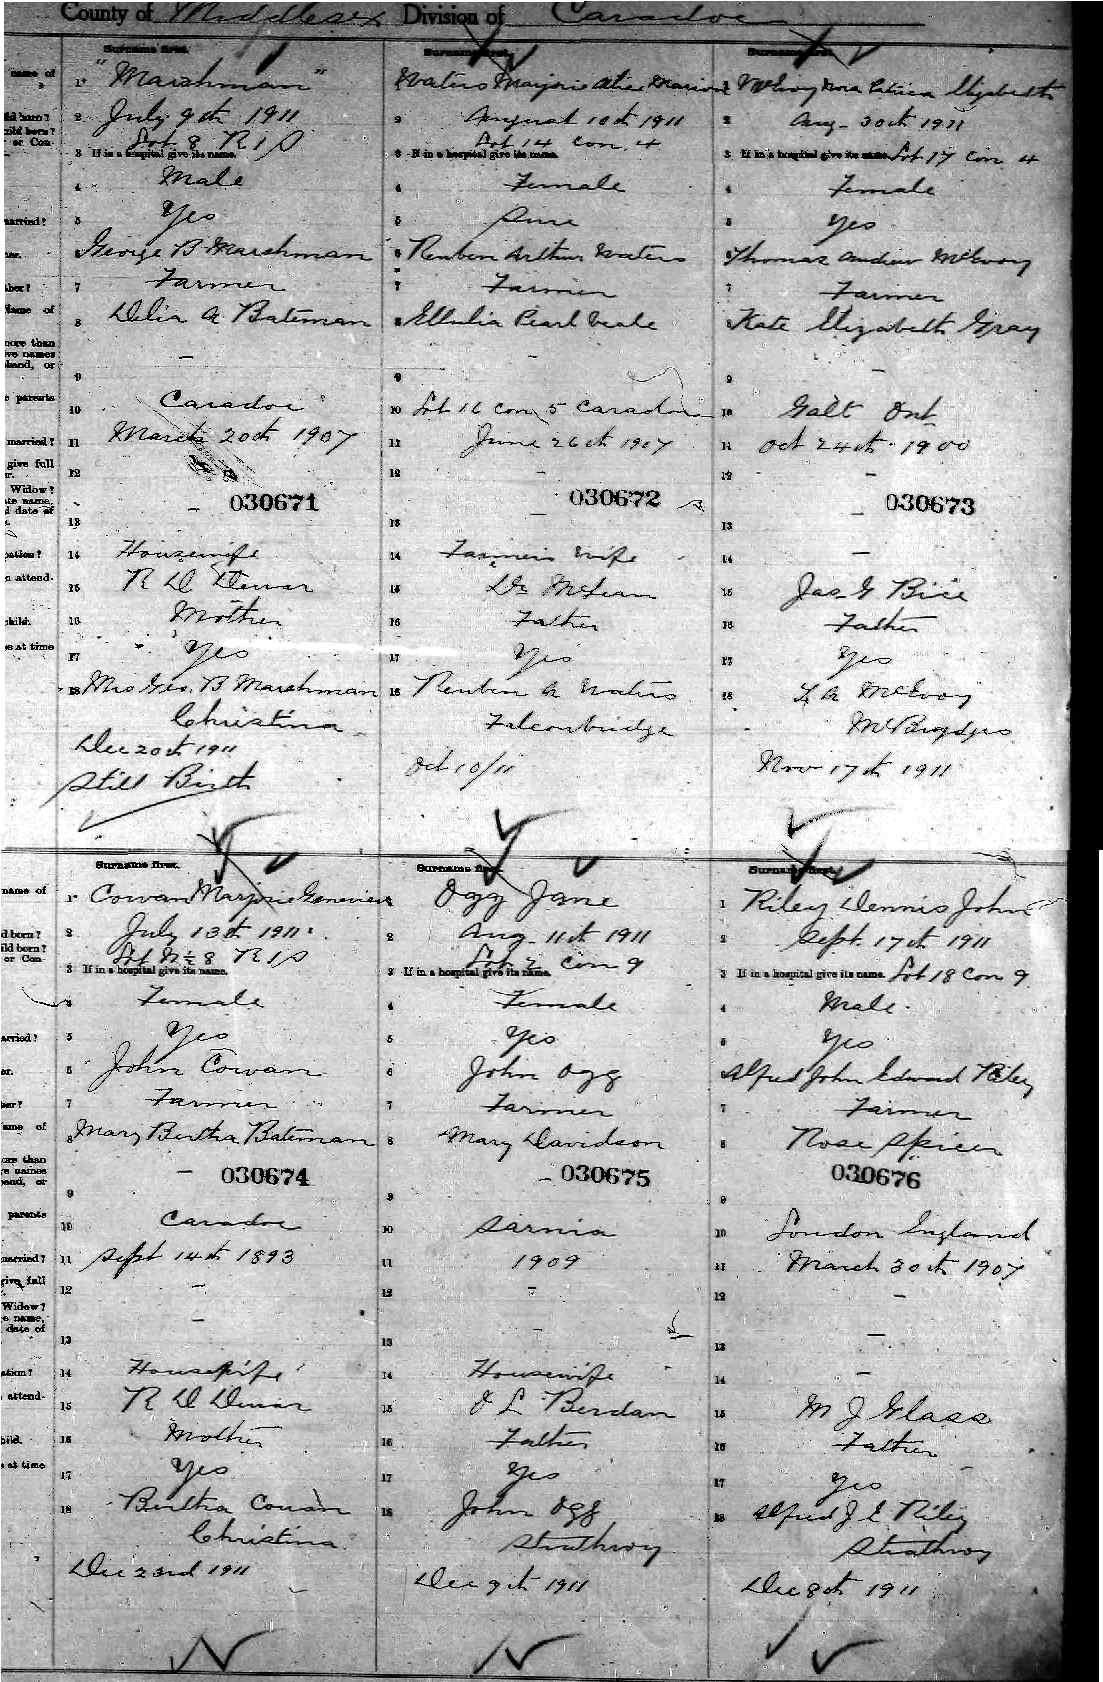 County of Middlesex Division of Caradoc
Surname first.
name of
1 "Marshman"
2 July 9th 1911
Lot 8 R 1 S
3 If in a hospital give its name.
4 Male
5 Yes
6 George B Marshman
7 Farmer
8 Delia A Bateman
9 –
10 Caradoc
11 March 20th 1907
12
030671
13 –
14 Housewife
15 R D Dewar
16 Mother
17 Yes
18 Mrs Geo. B Marshman
Christina
Dec 20th 1911
Still Birth
Surname first.
Waters Marjorie Marion
2 August 10th 1911
Lot 14 Con 4
3 If in a hospital give its name.
4 Female
5 Sure
6 Reuben Arthur Waters
7 Farmer
8 Pearl Veale
9 –
10 Lot 16 Con 5 Caradoc
11 June 26th 1907
12 –
030672
13 –
14 Farmer's Wife
15 Dr McLean
16 Father
17 Yes
18 Reuben A Waters
Falconbridge
Oct 10/11
Surname first.
1 McEvoy Nora Patricia Elizabeth
2 Aug 30th 1911
3 If in a hospital give its name. Lot 17 Con 4
4 Female
5 Yes
6 Thomas Andrew McEvoy
7 Farmer
8 Kate Elizabeth Gray
9 –
10 Galt Ont
11 Oct 24th 1900
12 –
030673
13
14 –
15 Jas G Bice
16 Father
17 Yes
18 T A McEvoy
Nov 17th 1911
Surname first.
name of
1 Cowan Marjorie Genevieve
2 July 13th 1911
Lot N½ 8 R 1 S
3 If in a hospital give its name.
4 Female
5 Yes
6 John Cowan
7 Farmer
8 Mary Bertha Bateman
– 030674
9
10 Caradoc
11 Sept 14th 1893
12 –
13 –
14 Housewife
15 R D Dewar
16 Mother
17 Yes
18 Bertha Cowan
Christina
Dec 23rd 1911
Surname first.
Ogg Jane
2 Aug 11th 1911
Lot 7 Con 9
3 If in a hospital give its name.
4 Female
5 Yes
6 John Ogg
7 Farmer
8 Mary Davidson
– 030675
9
10 Sarnia
11 1909
12 –
13 –
14 Housewife
15 O L Berdan
16 Father
17 Yes
18 John Ogg
Strathroy
Dec 9th 1911
Surname first.
1 Riley Dennis John
2 Sept 17th 1911
3 If in a hospital give its name. Lot 18 Con 9
4 Male
5 Yes
6 Alfred John Edward Riley
7 Farmer
8 Rose Spicer
030676
9
10 London England
11 March 30th 1907
12 –
13 –
14 –
15 M J Glass
16 Father
17 Yes
18 Alfred J E Riley
Strathroy
Dec 8th 1911